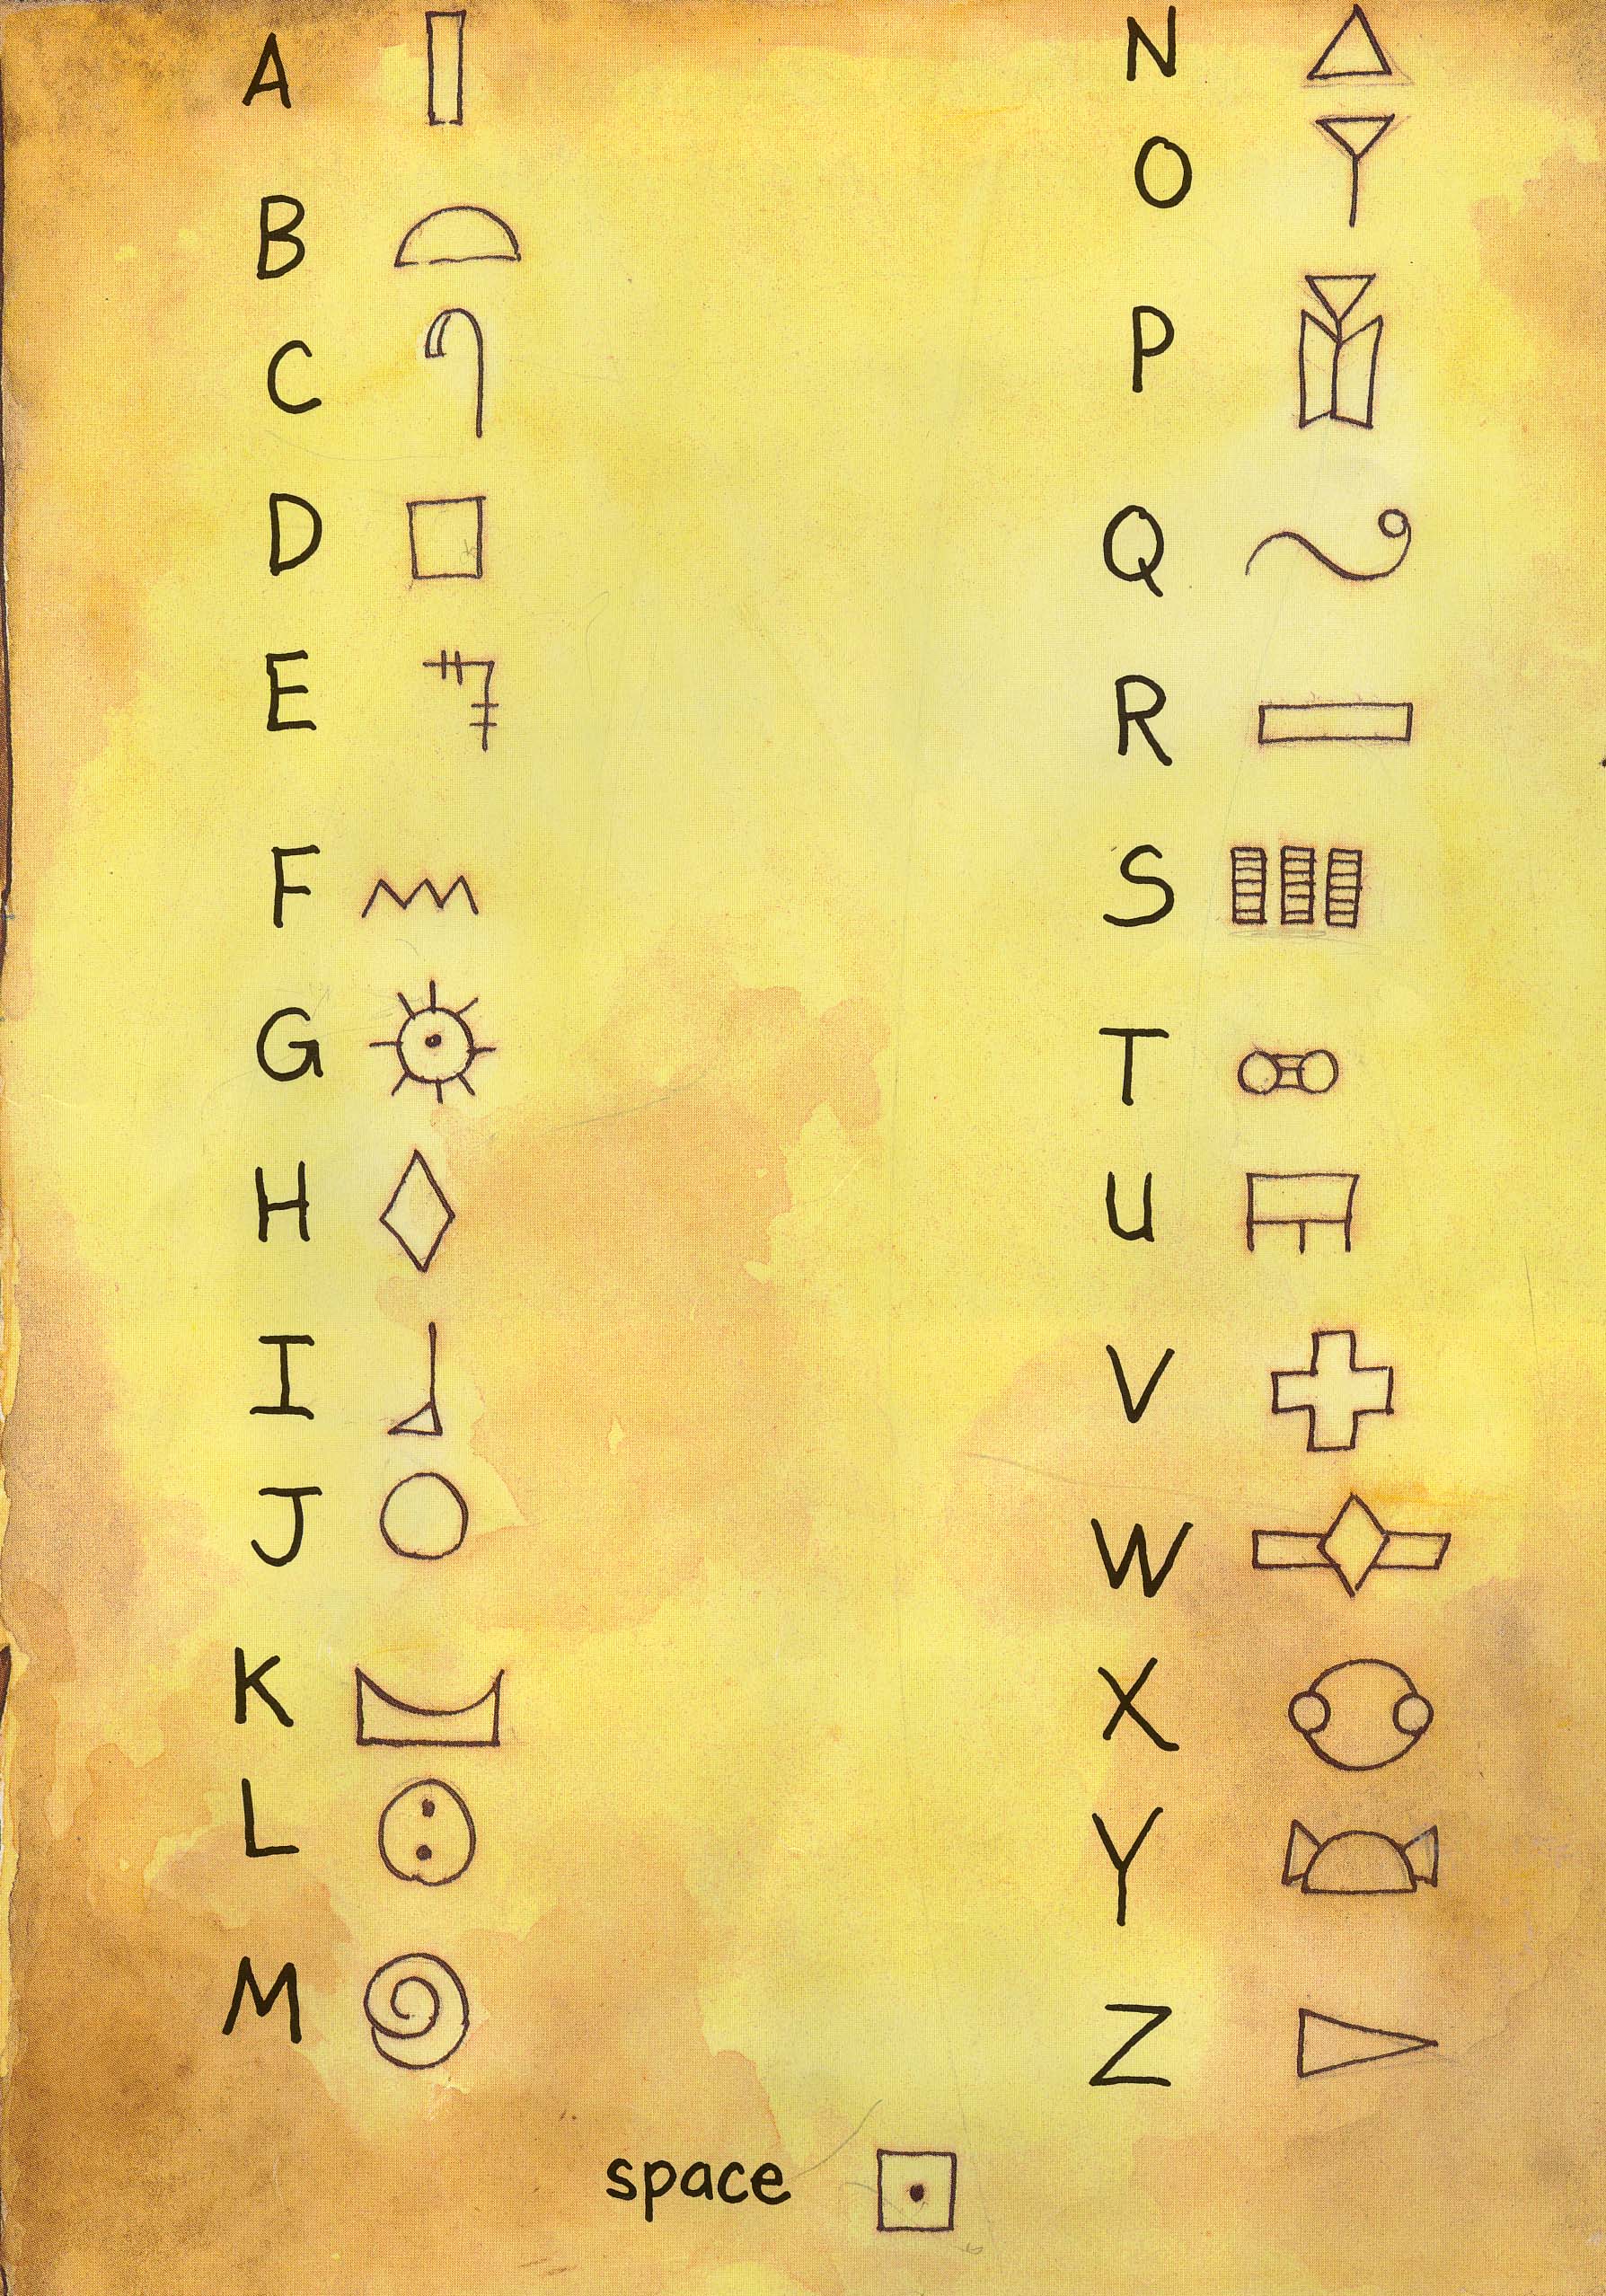 A
B
C
D
E
F
G
H
I
J
K
L
M
N
O
P
Q
R
S
T
U
V
W
X
Y
Z
space